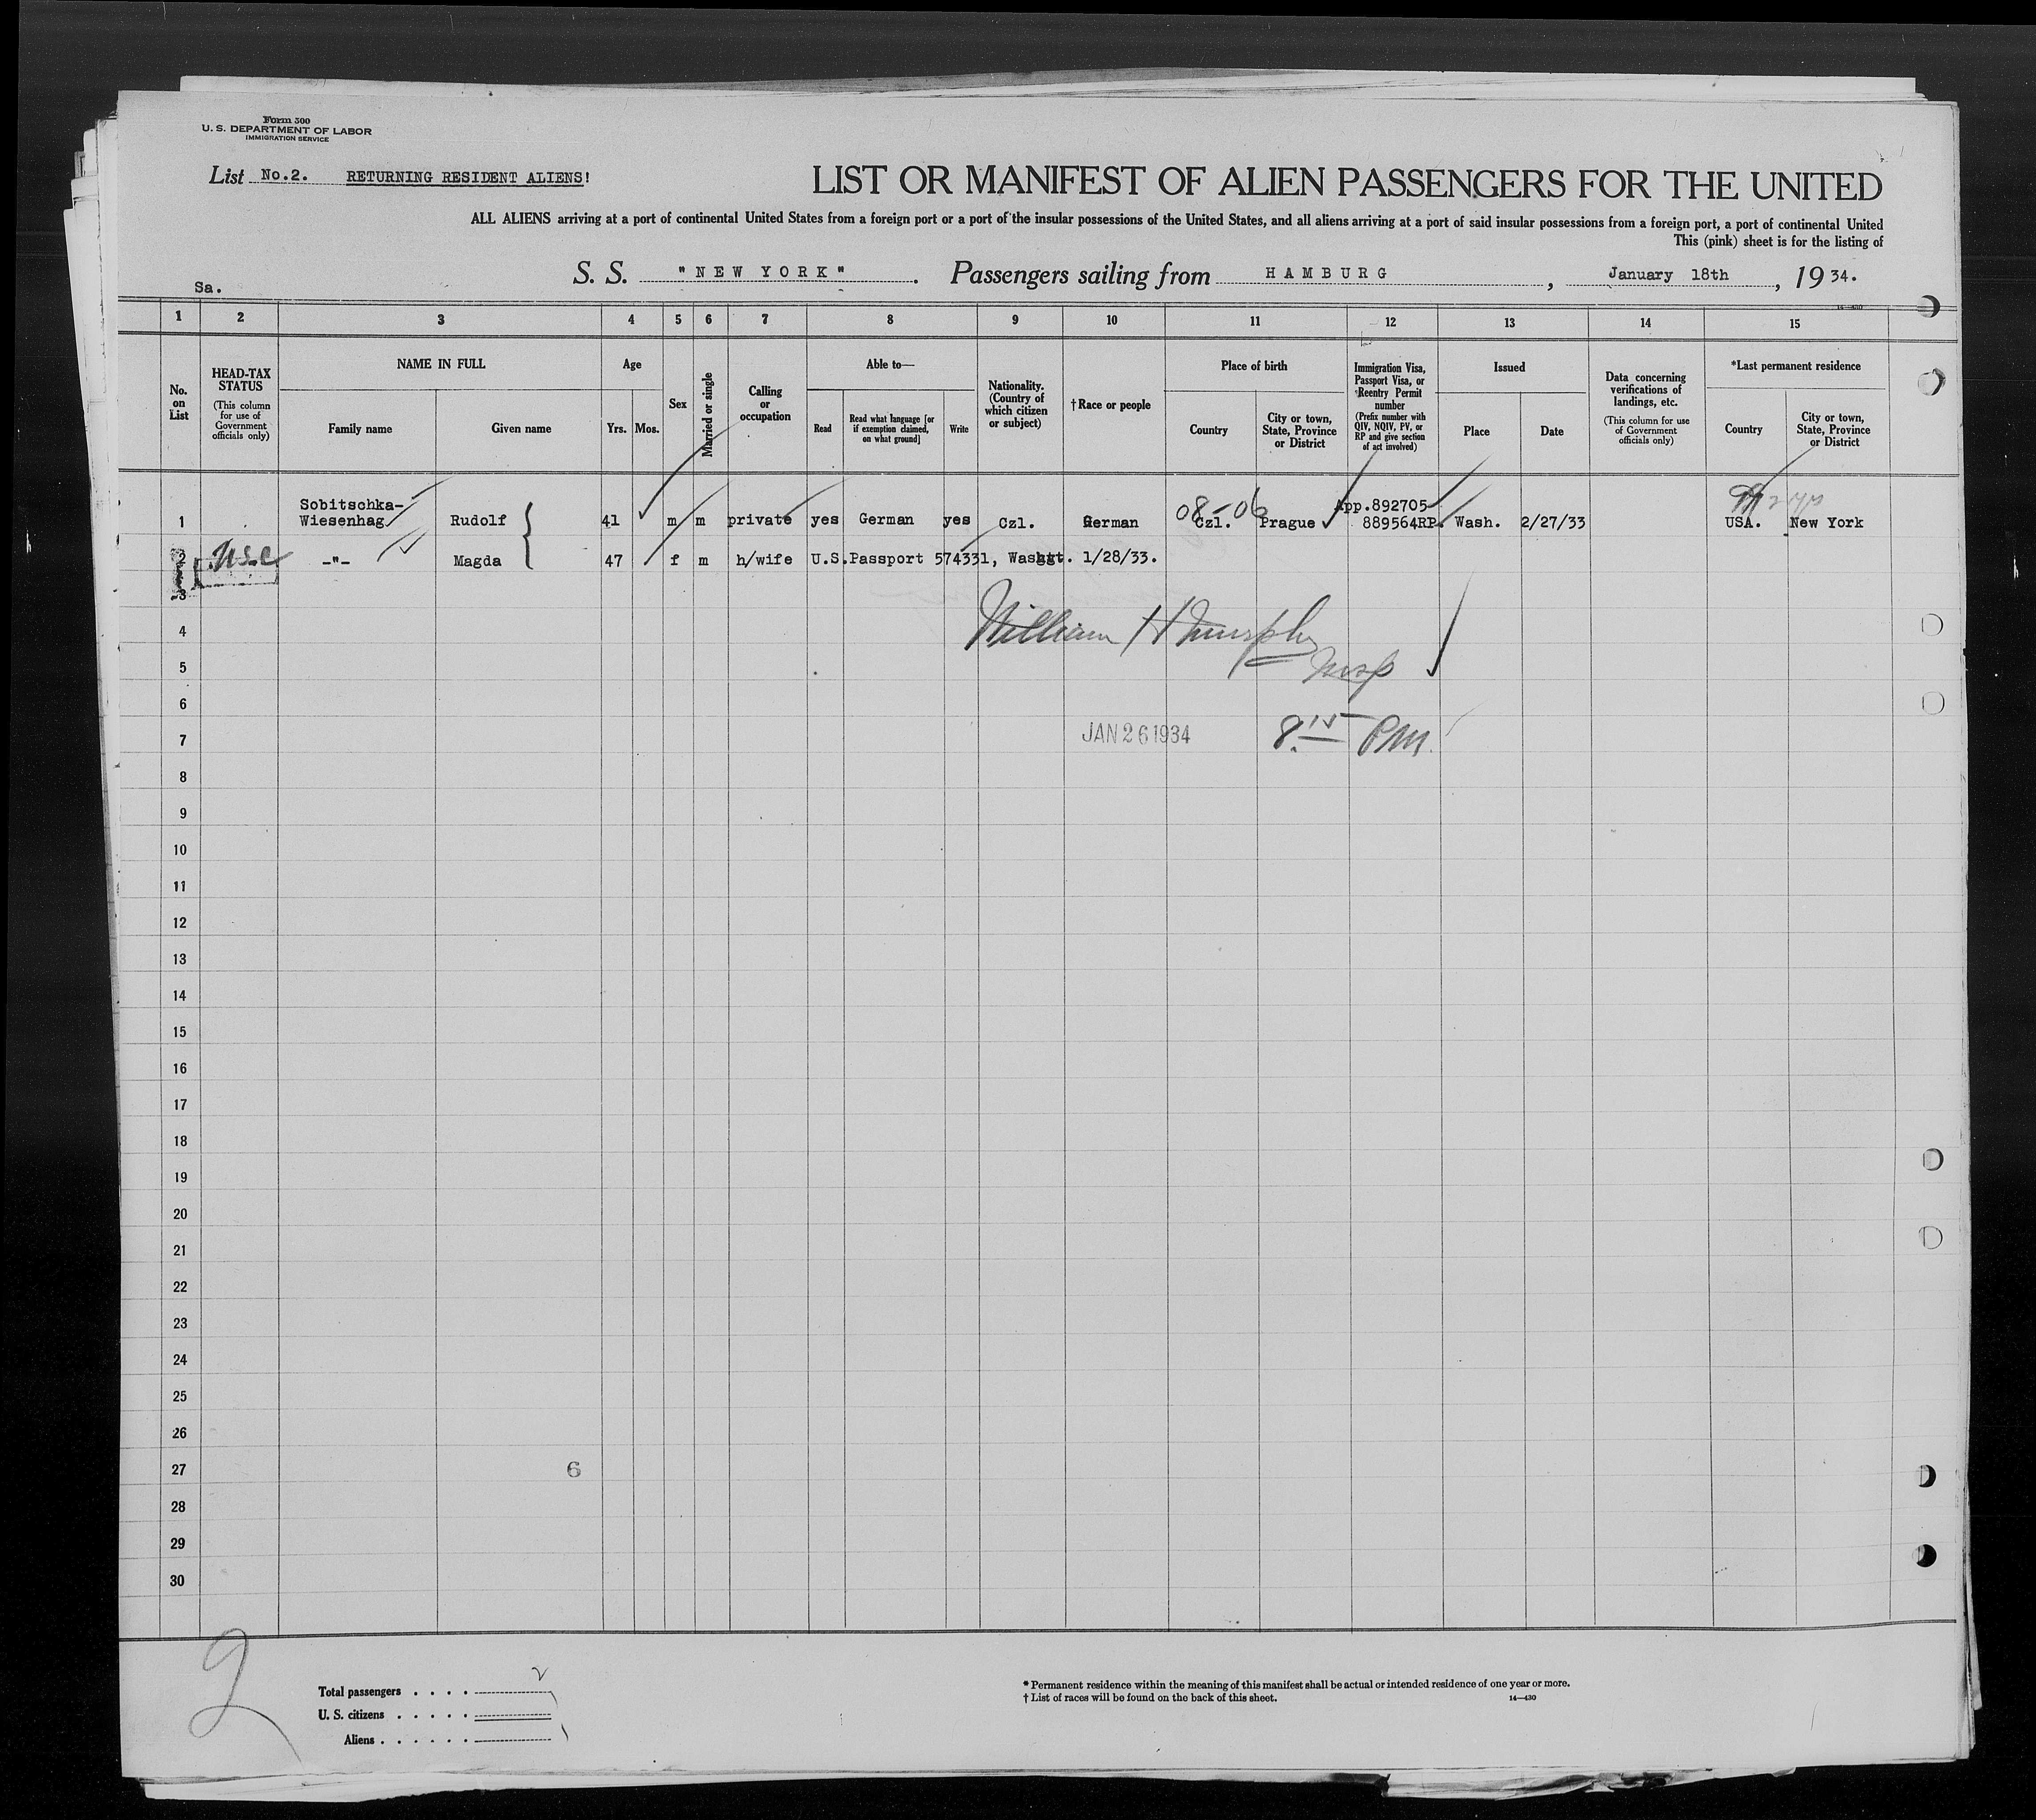 Form 500
U. S. DEPARTMENT OF LABOR
IMMIGRATION SERVICE
List No.2. RETURNING RESIDENT ALIENS!
LIST OR MANIFEST OF ALIEN PASSENGERS FOR THE UNITED
ALL ALIENS arriving at a port of continental United States from a foreign port or a port of the insular possessions of the United States, and all aliens arriving at a port of said insular possessions from a foreign port, a port of continental United
This (pink) sheet is for the listing of
Sa.
S. S. "NEW YORK". Passengers sailing from HAMBURG, January 18th, 1934.
14—430
1 2 3 4 5 6 7 8 9 10 11 12 13 14 15
No. on List
HEAD-TAX STATUS
(This column for use of Government officials only)
NAME IN FULL
Family name
Given name
Age
Yrs. Mos.
Sex
Married or single
Calling or occupation
Able to—
Read
Read what language [or if exemption claimed, on what ground]
Write
Nationality. (Country of which citizen or subject)
†Race or people
Place of birth
Country
City or town, State, Province or District
Immigration Visa, Passport Visa, or Reentry Permit number
(Prefix number with QIV, NQIV, PV, or RP and give section of act involved)
Issued
Place
Date
Data concerning verifications of landings, etc.
(This column for use of Government officials only)
*Last permanent residence
Country
City or town, State, Province or District
Sobitschka-
08-06 App.892705
1 Wiesenhag Rudolf 41 m m private yes German yes Czl. German Czl. Prague 889564RP. Wash. 2/27/33 USA. New York
2 USC -"- Magda 47 f m h/wife U.S.Passport 574331, Washgt. 1/28/33.
3
4 William H Murphy
5 Insp
6
7 JAN 26 1934 8.15 PM.
8
9
10
11
12
13
14
15
16
17
18
19
20
21
22
23
24
25
26
27 6
28
29
30
2
Total passengers . . . .
U. S. citizens . . . . .
Aliens . . . . . .
* Permanent residence within the meaning of this manifest shall be actual or intended residence of one year or more.
† List of races will be found on the back of this sheet.
14—430